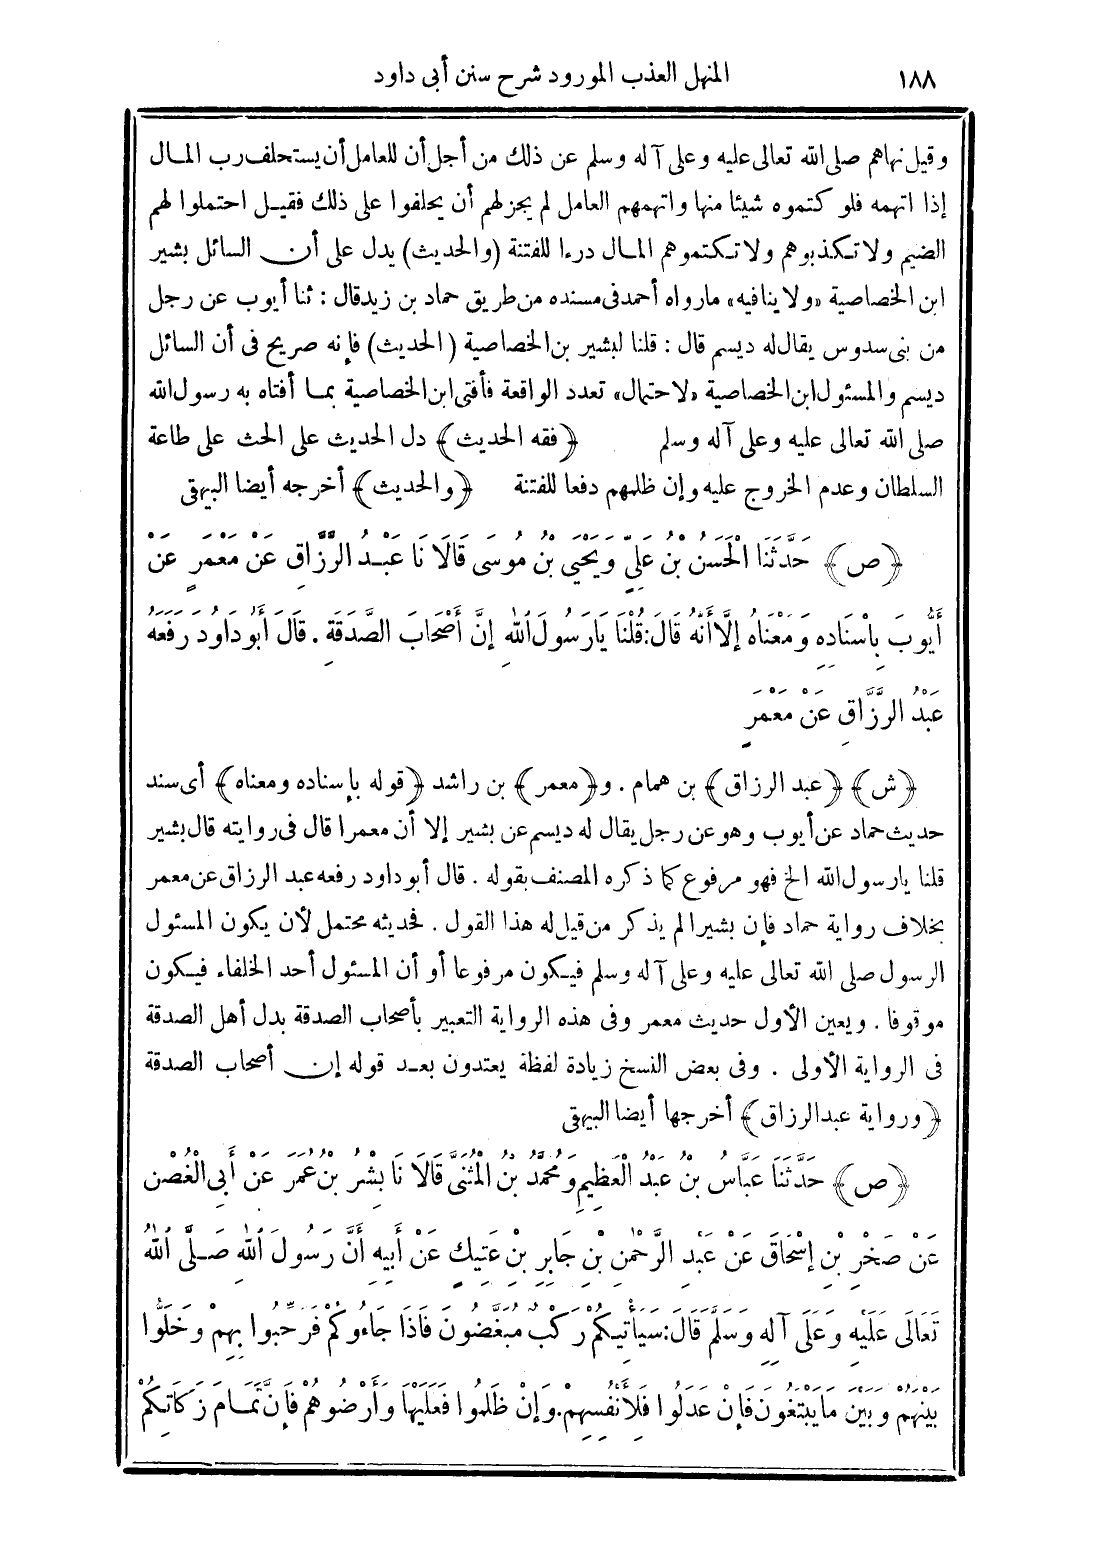 ١٨٨ المنهل العذب المورود شرح سنن أبى داود
وقيل نهاهم صلى الله تعالى عليه وعلى آله وسلم عن ذلك من أجل أن للعامل أن يستحلف رب المال
إذا اتهمه فلو كتموه شيئا منها واتهمهم العامل لم يجز لهم أن يحلفوا على ذلك فقيل احتملوا لهم
الضيم ولا تكذبوهم ولا تكتموهم المال درءا للفتنة (والحديث) يدل على أن السائل بشير
ابن الخصاصية «ولا ينافيه» ما رواه أحمد فى مسنده من طريق حماد بن زيد قال : ثنا أيوب عن رجل
من بنى سدوس يقال له ديسم قال : قلنا لبشير بن الخصاصية (الحديث) فإنه صريح فى أن السائل
ديسم والمسئول ابن الخصاصية «لاحتمال» تعدد الواقعة فأفتى ابن الخصاصية بما أفتاه به رسول الله
صلى الله تعالى عليه وعلى آله وسلم ﴿فقه الحديث﴾ دل الحديث على الحث على طاعة
السلطان وعدم الخروج عليه وإن ظلمهم دفعا للفتنة ﴿والحديث﴾ أخرجه أيضا البيهقى
﴿ص﴾ حَدَّثَنَا الْحَسَنُ بْنُ عَلِيٍّ وَيَحْيَى بْنُ مُوسَى قَالَا نَا عَبْدُ الرَّزَّاقِ عَنْ مَعْمَرٍ عَنْ
أَيُّوبَ بِإِسْنَادِهِ وَمَعْنَاهُ إِلَّا أَنَّهُ قَالَ: قُلْنَا يَا رَسُولَ اللهِ إِنَّ أَصْحَابَ الصَّدَقَةِ . قَالَ أَبُو دَاوُدَ رَفَعَهُ
عَبْدُ الرَّزَّاقِ عَنْ مَعْمَرٍ
﴿ش﴾ ﴿عبد الرزاق﴾ بن همام . و﴿معمر﴾ بن راشد ﴿قوله بإسناده ومعناه﴾ أى سند
حديث حماد عن أيوب وهو عن رجل يقال له ديسم عن بشير إلا أن معمرا قال فى روايته قال بشير
قلنا يا رسول الله الخ فهو مرفوع كما ذكره المصنف بقوله . قال أبو داود رفعه عبد الرزاق عن معمر
بخلاف رواية حماد فإن بشيرا لم يذكر من قيل له هذا القول . فحديثه محتمل لأن يكون المسئول
الرسول صلى الله تعالى عليه وعلى آله وسلم فيكون مرفوعا أو أن المسئول أحد الخلفاء فيكون
موقوفا . ويعين الأول حديث معمر وفى هذه الرواية التعبير بأصحاب الصدقة بدل أهل الصدقة
فى الرواية الأولى . وفى بعض النسخ زيادة لفظة يعتدون بعد قوله إن أصحاب الصدقة
﴿ورواية عبد الرزاق﴾ أخرجها أيضا البيهقى
﴿ص﴾ حَدَّثَنَا عَبَّاسُ بْنُ عَبْدِ الْعَظِيمِ وَمُحَمَّدُ بْنُ الْمُثَنَّى قَالَا نَا بِشْرُ بْنُ عُمَرَ عَنْ أَبِي الْغُصْنِ
عَنْ صَخْرِ بْنِ إِسْحَاقَ عَنْ عَبْدِ الرَّحْمٰنِ بْنِ جَابِرِ بْنِ عَتِيكٍ عَنْ أَبِيهِ أَنَّ رَسُولَ اللهِ صَلَّى اللهُ
تَعَالَى عَلَيْهِ وَعَلَى آلِهِ وَسَلَّمَ قَالَ: سَيَأْتِيكُمْ رَكْبٌ مُبَغَّضُونَ فَإِذَا جَاءُوكُمْ فَرَحِّبُوا بِهِمْ وَخَلُّوا
بَيْنَهُمْ وَبَيْنَ مَا يَبْتَغُونَ فَإِنْ عَدَلُوا فَلِأَنْفُسِهِمْ. وَإِنْ ظَلَمُوا فَعَلَيْهَا وَأَرْضُوهُمْ فَإِنَّ تَمَامَ زَكَاتِكُمْ